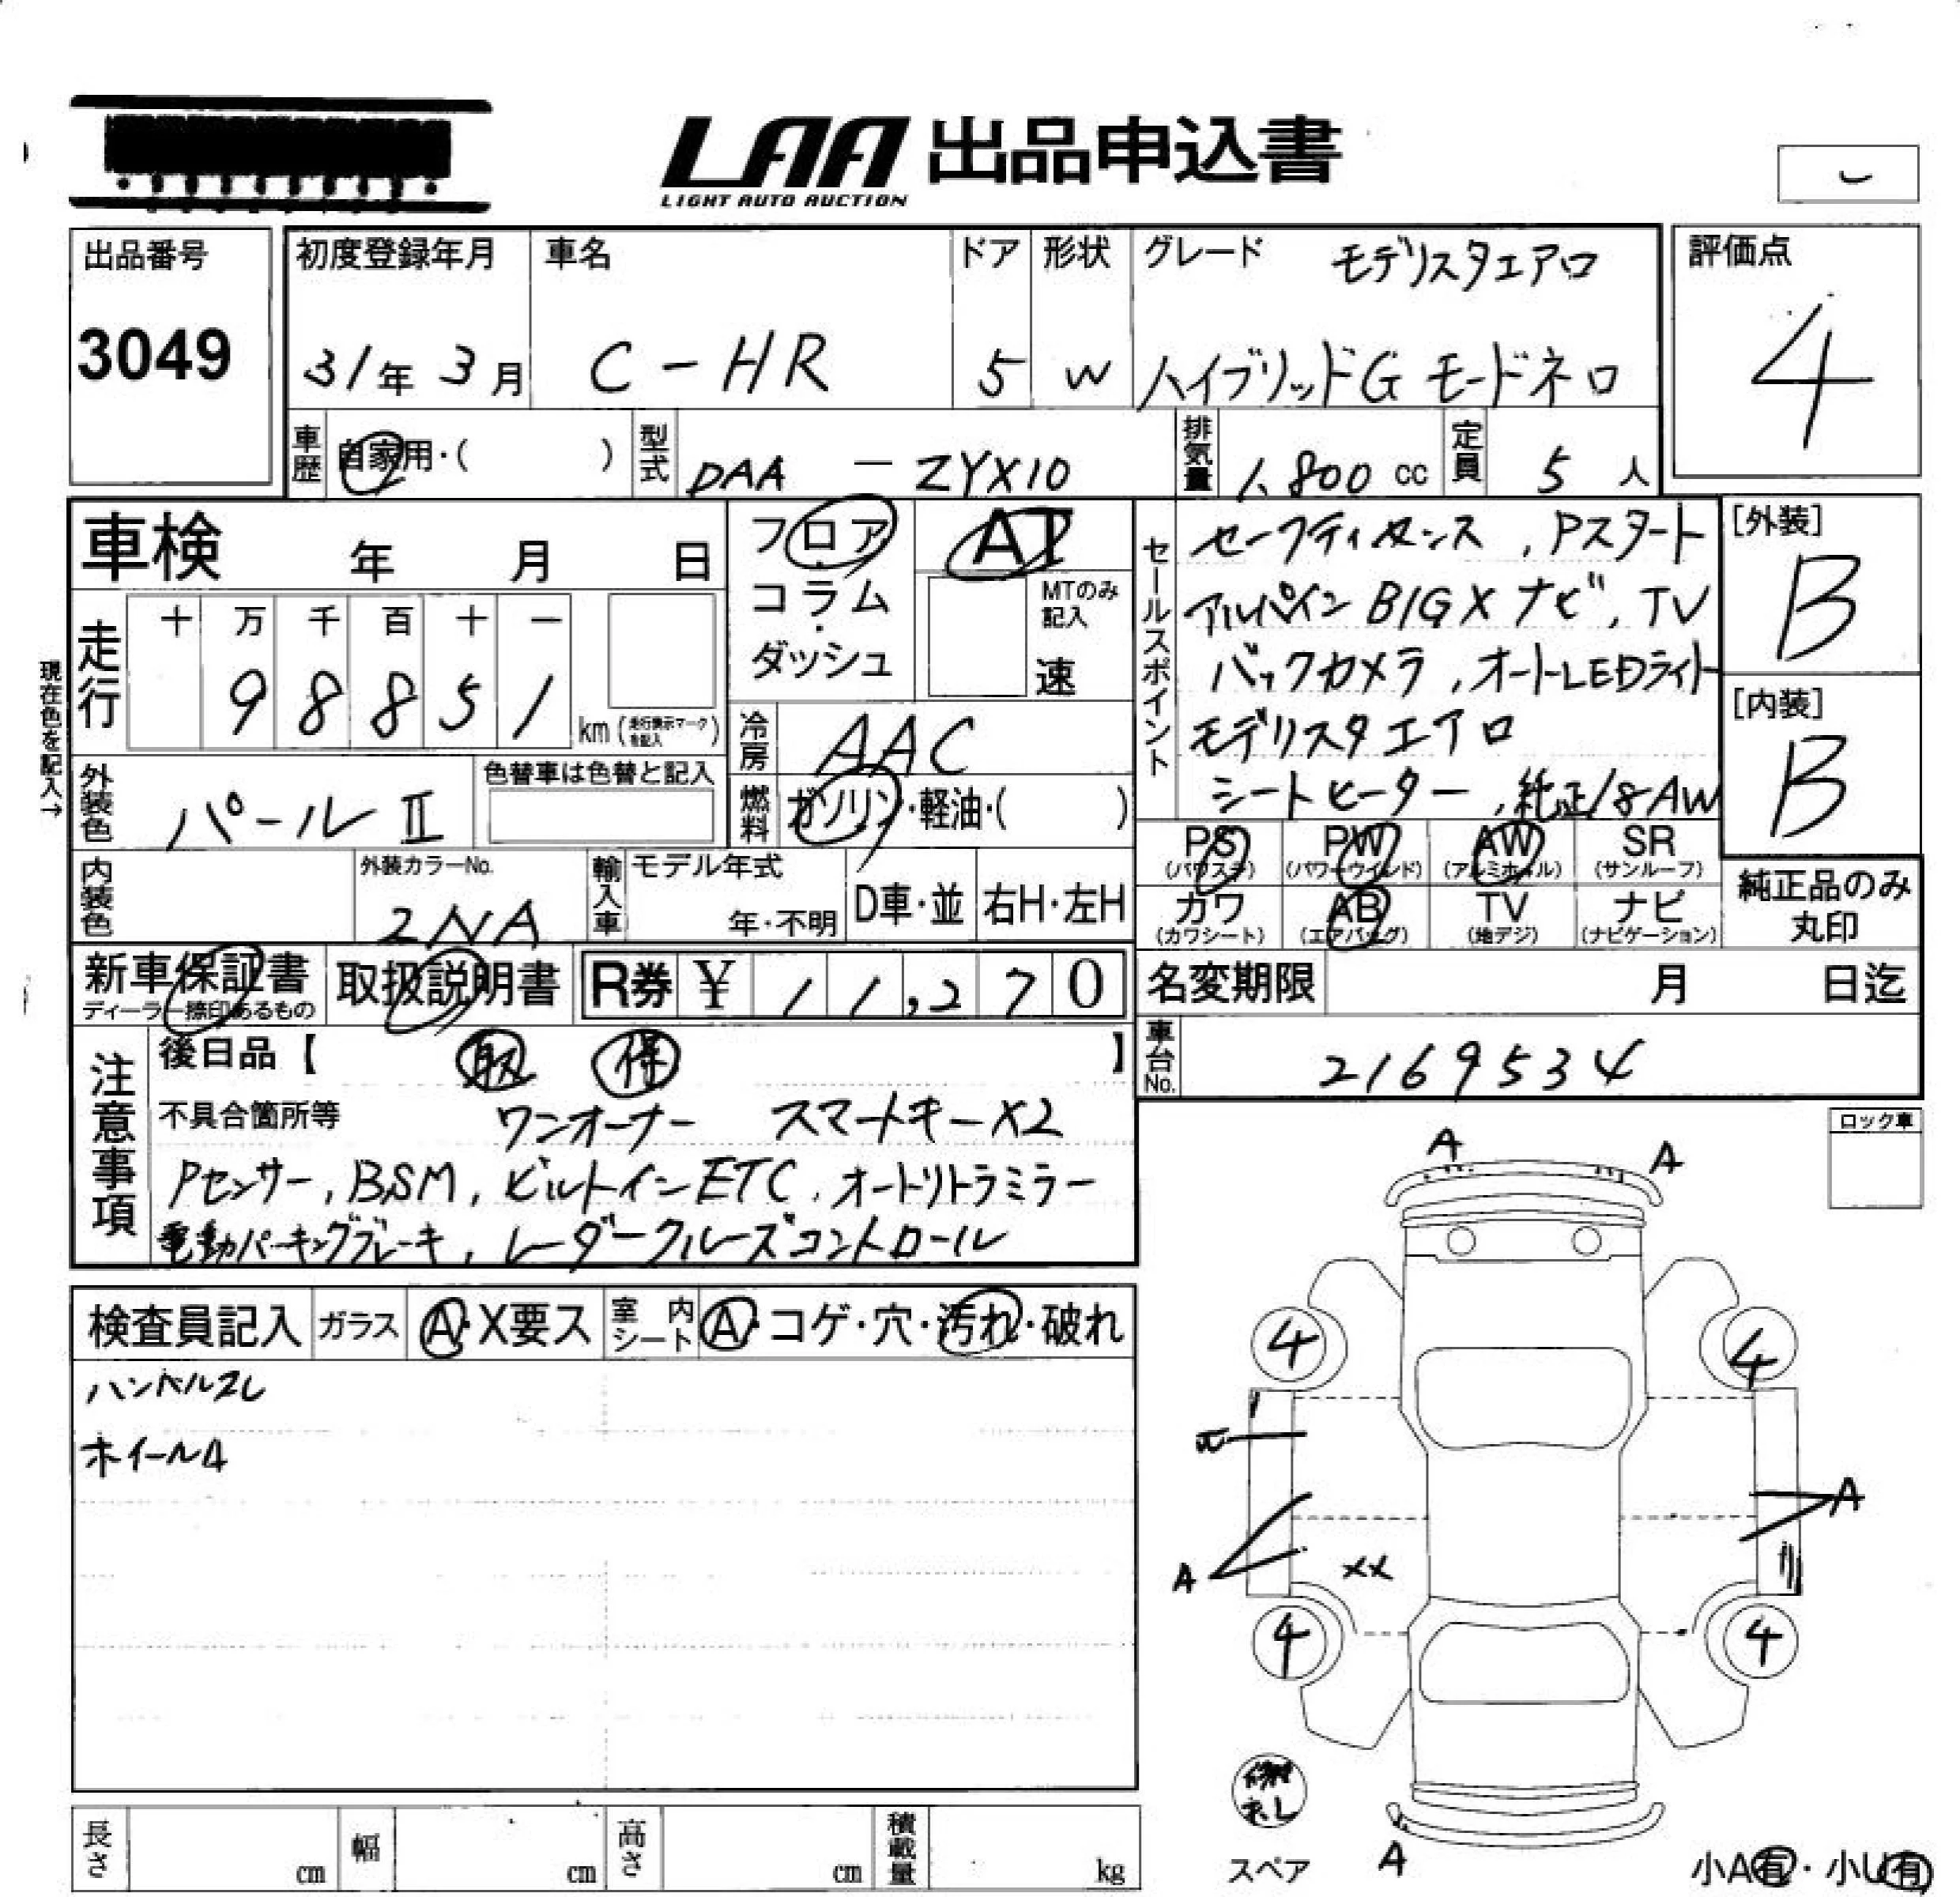 LAA 出品申込書
LIGHT AUTO AUCTION
出品番号
3049
初度登録年月
31年 3月
車名
C-HR
ドア
5
形状
W
グレード
モデリスタエアロ
ハイブリッドG モードネロ
評価点
4
車歴
自家用・( )
型式
DAA - ZYX10
排気量
1,800 cc
定員
5 人
車検 年 月 日
走行
十 万 千 百 十 一
9 8 8 5 1
km (走行表示マークを記入)
現在色を記入→
フロア
コラム
ダッシュ
AT
MTのみ記入
速
冷房
AAC
燃料
ガソリン・軽油・( )
セールスポイント
セーフティセンス , Pスタート
アルパイン BIG X ナビ , TV
バックカメラ , オートLEDライト
モデリスタエアロ
シートヒーター , 純正18AW
[外装]
B
[内装]
B
外装色
パールⅡ
色替車は色替と記入
内装色
外装カラーNo.
2NA
輸入車
モデル年式
年・不明
D車・並
右H・左H
PS (パワステ)
PW (パワーウインド)
AW (アルミホイル)
SR (サンルーフ)
カワ (カワシート)
AB (エアバッグ)
TV (地デジ)
ナビ (ナビゲーション)
純正品のみ
丸印
新車保証書
ディーラー捺印あるもの
取扱説明書
R券 ¥ 11,270
名変期限 月 日迄
車台No.
2169534
注意事項
後日品【 取 保 】
不具合箇所等
ワンオーナー スマートキーX2
Pセンサー , BSM , ビルトインETC , オートリトラミラー
電動パーキングブレーキ , レーダークルーズコントロール
ロック車
検査員記入
ガラス
A・X要ス
室内シート
A・コゲ・穴・汚れ・破れ
ハンドルスレ
ホイールA
A
A
4
4
A
A
XX
4
4
A
スペア
小A有・小U有
長さ cm
幅 cm
高さ cm
積載量 kg